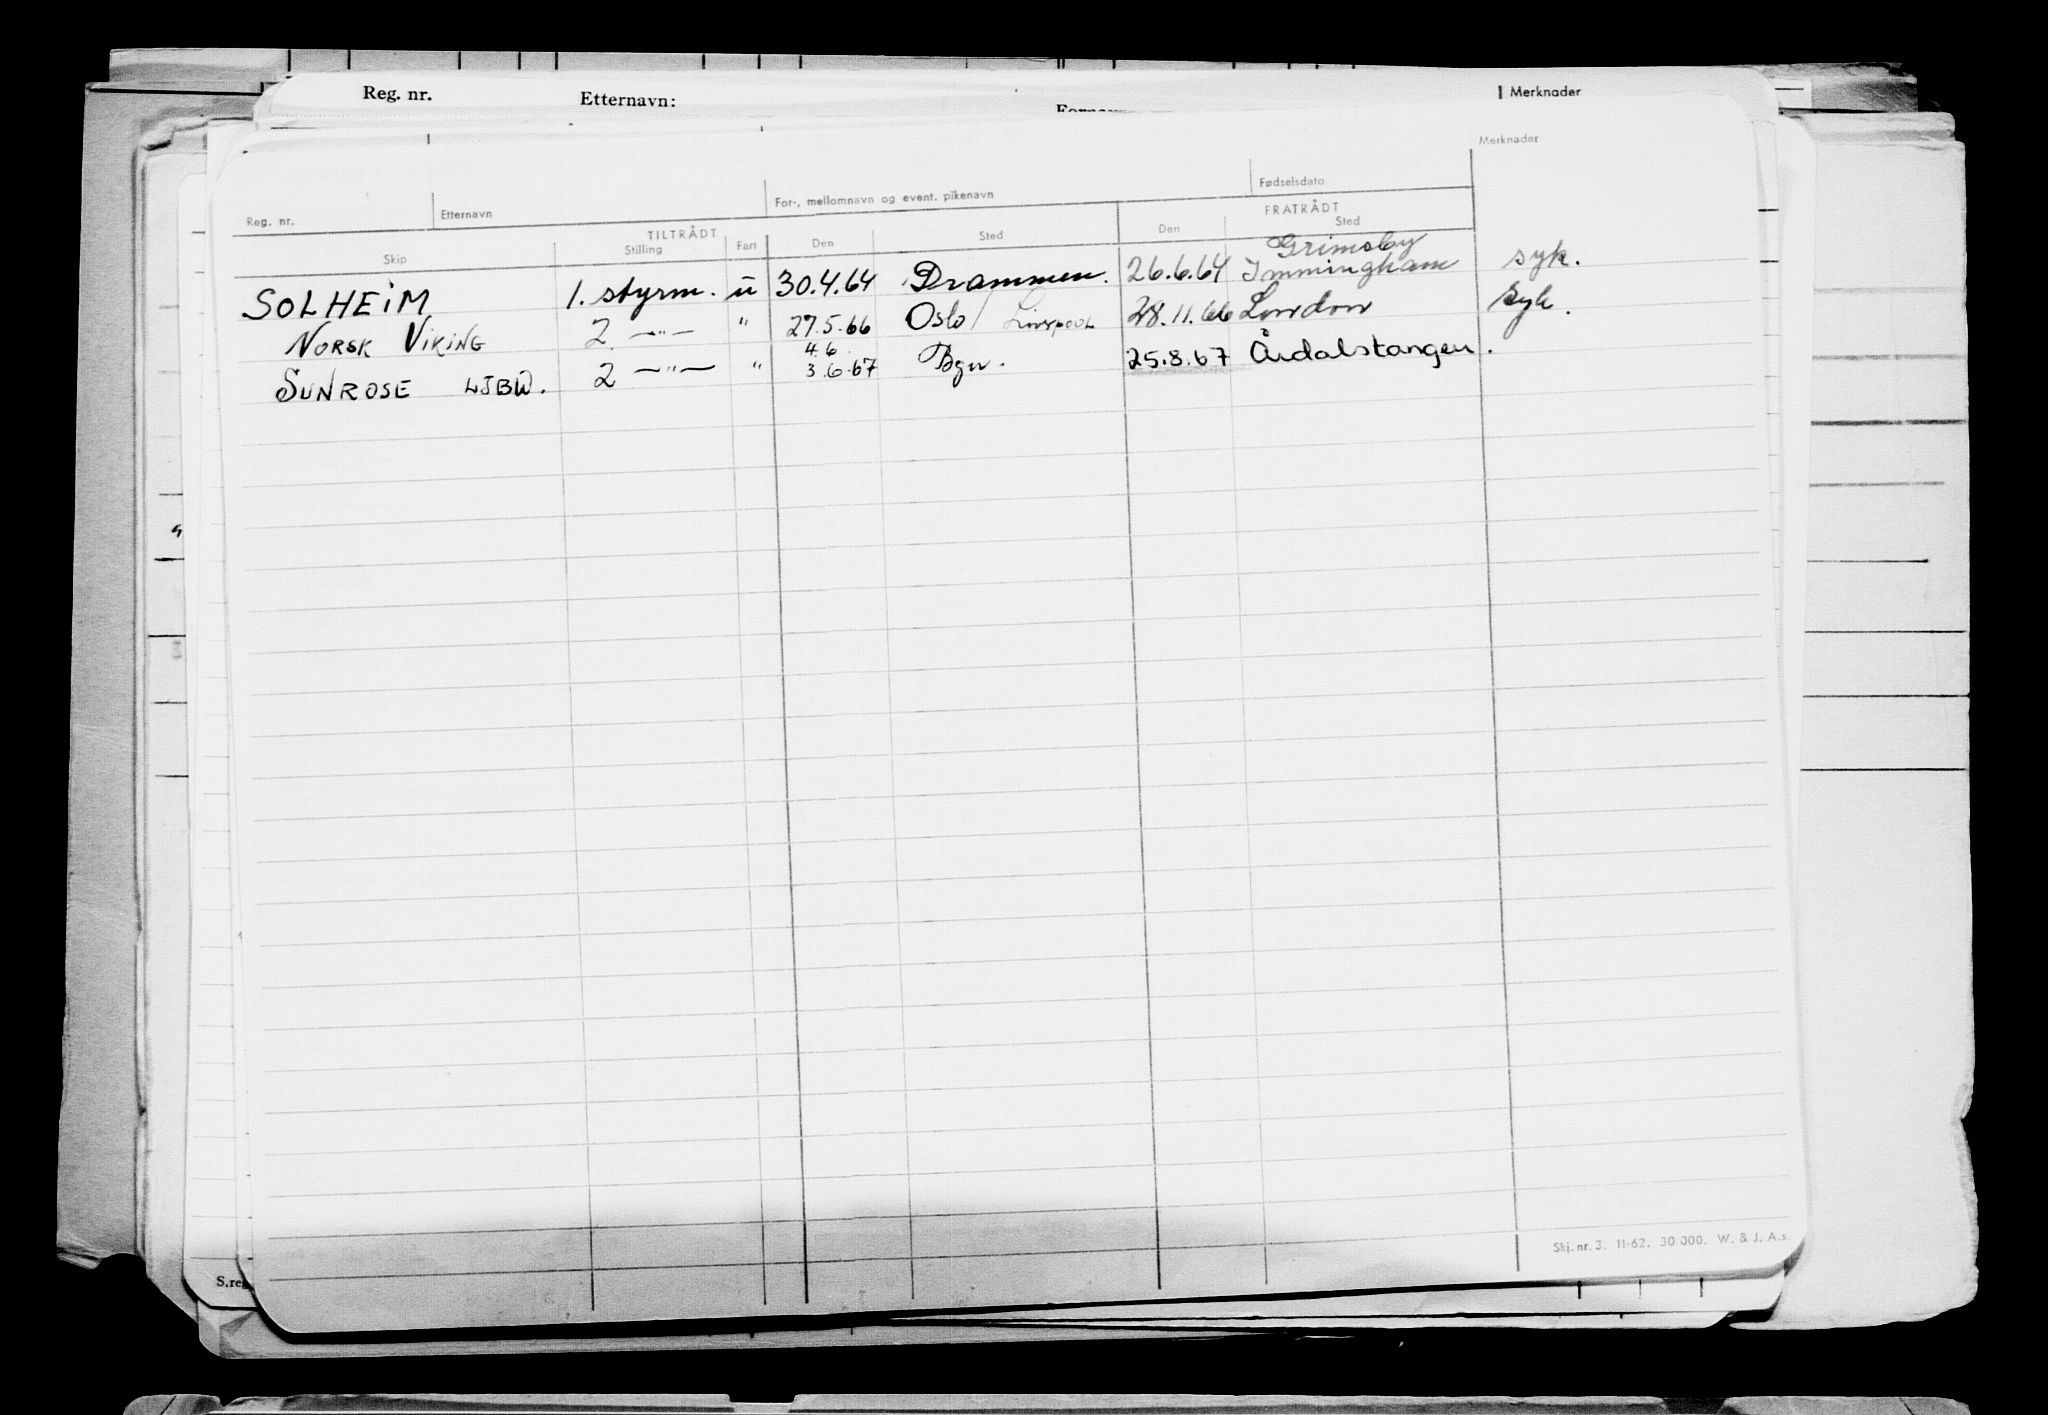 Reg. nr. Etternavn: Merknader
Merknader
Reg. nr. Etternavn For-, mellomnavn og event. pikenavn Fødselsdato
TILTRÅDT FRATRÅDT
Skip Stilling Fart Den Sted Den Sted
Grimsby
SOLHEIM 1. styrm. u 30.4.64 Drammen. 26.6.64 Immingham syk.
NORSK VIKING 2 —"— " 27.5.66 Oslo / Liverpool 28.11.66 London syk.
4.6
SUNROSE LJBW. 2 —"— " 3.6.67 Bgn. 25.8.67 Årdalstangen.
Skj. nr. 3. 11-62. 30 000. W. & J. A.s.